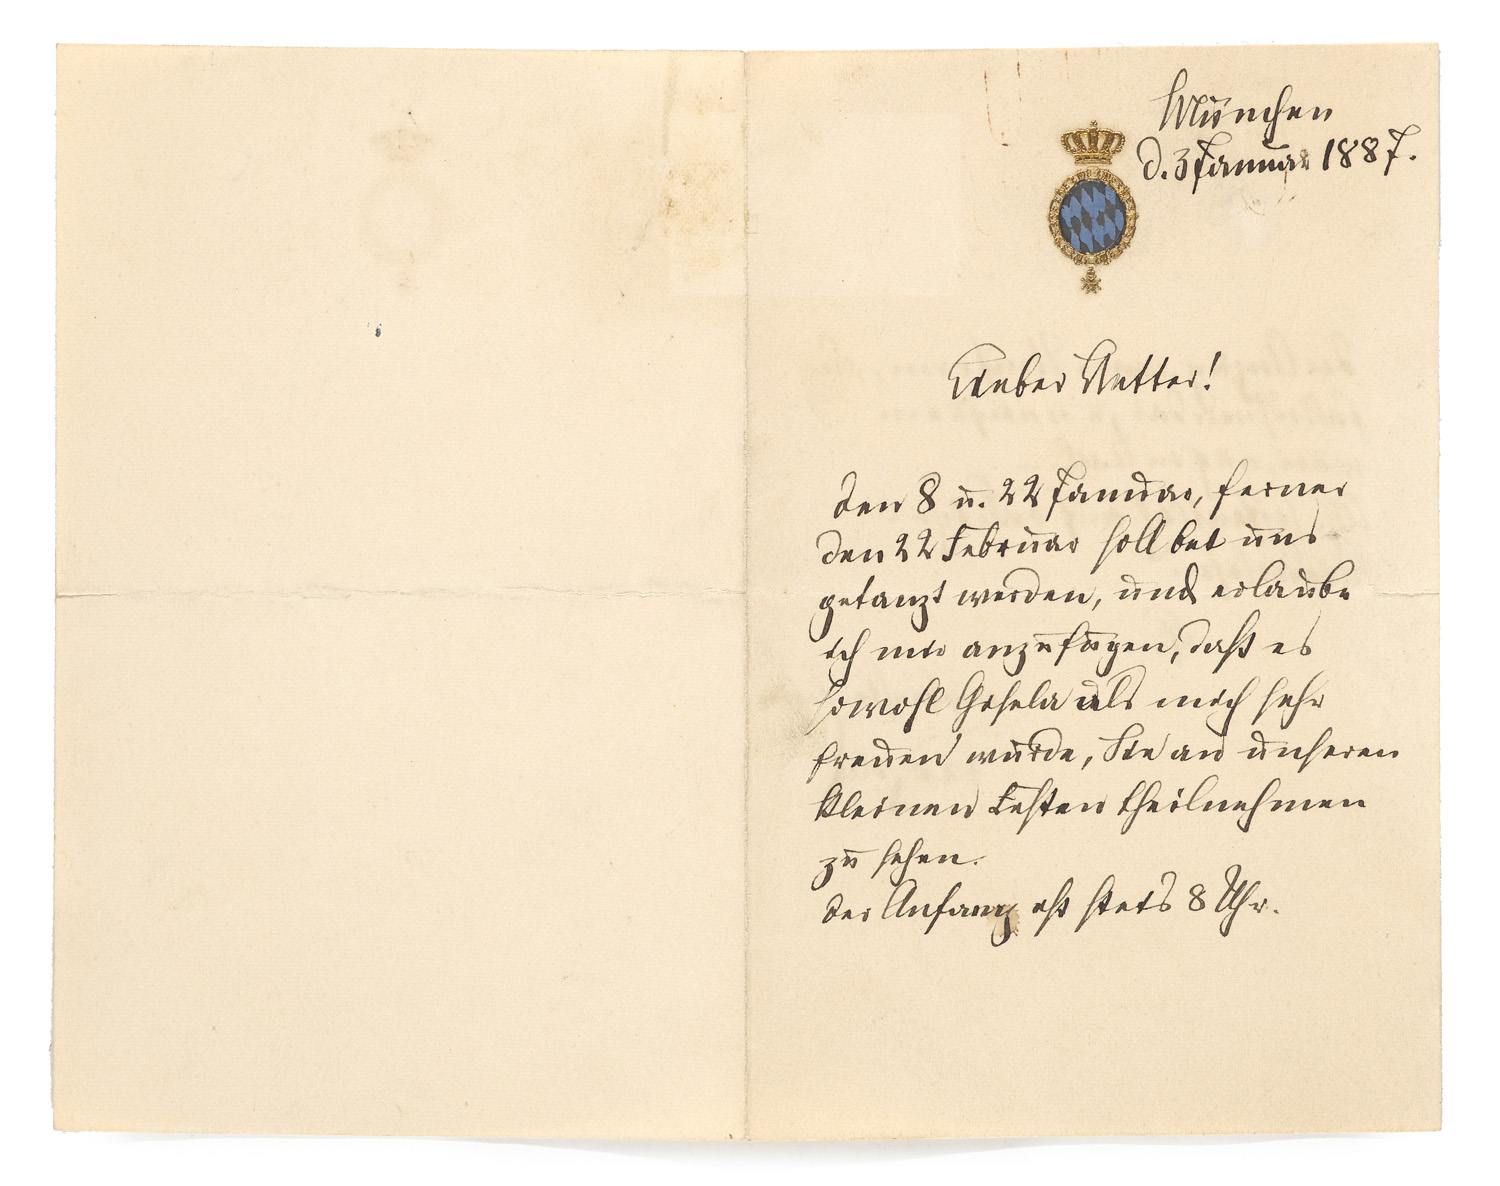 München
d. 3 Januar 1887.
Lieber Vetter!
Den 8 u. 22 Januar, ferner
den 22 Februar soll bei uns
getanzt werden, und erlaube
ich mir anzufügen, daß es
sowohl Gisela als mich sehr
freuen würde, Sie an unseren
kleinen Festen theilnehmen
zu sehen.
Der Anfang ist stets 8 Uhr.